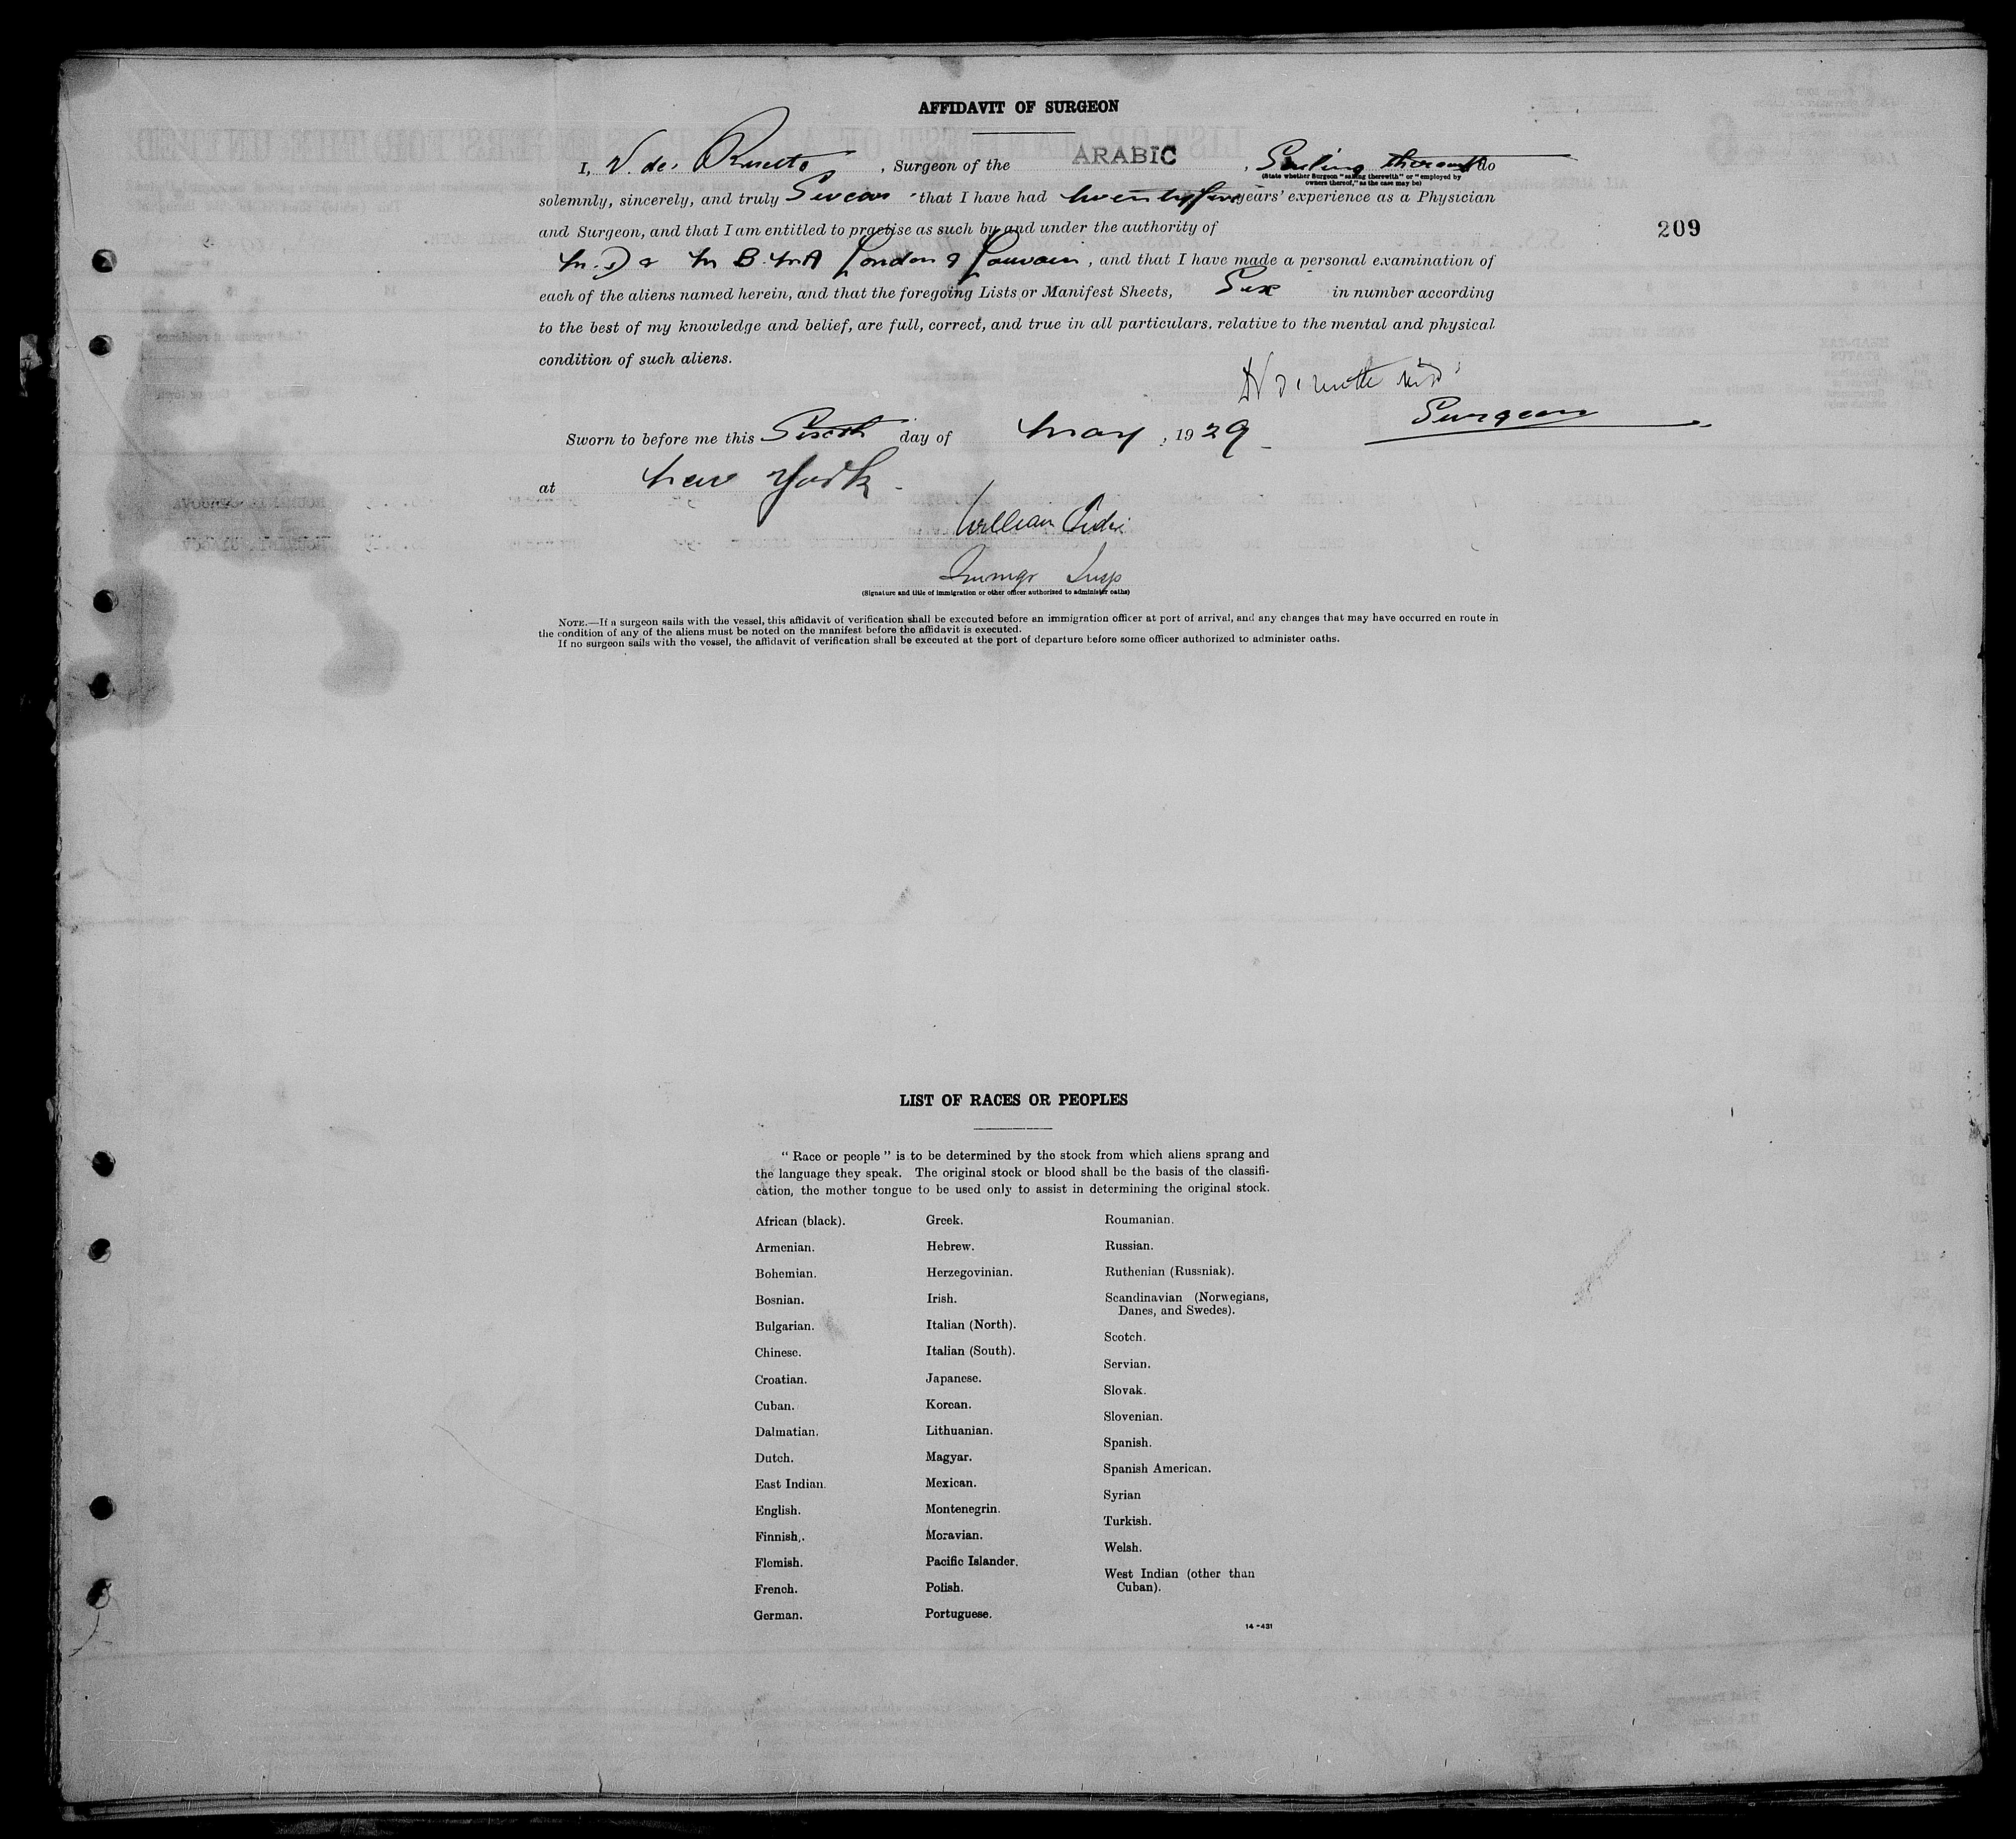 AFFIDAVIT OF SURGEON
I, V. de , Surgeon of the ARABIC , Sailing therewith do
(State whether Surgeon "sailing therewith" or "employed by
owners thereof," as the case may be)
solemnly, sincerely, and truly Swear that I have had years' experience as a Physician
and Surgeon, and that I am entitled to practise as such by and under the authority of
London & Louvain , and that I have made a personal examination of
each of the aliens named herein, and that the foregoing Lists or Manifest Sheets, Six in number according
to the best of my knowledge and belief, are full, correct, and true in all particulars, relative to the mental and physical
condition of such aliens.
Surgeon
Sworn to before me this Sixth day of May , 1929
at New York
William
Immgr Insp
(Signature and title of immigration or other officer authorized to administer oaths)
209
NOTE.—If a surgeon sails with the vessel, this affidavit of verification shall be executed before an immigration officer at port of arrival, and any changes that may have occurred en route in
the condition of any of the aliens must be noted on the manifest before the affidavit is executed.
If no surgeon sails with the vessel, the affidavit of verification shall be executed at the port of departure before some officer authorized to administer oaths.
LIST OF RACES OR PEOPLES
"Race or people" is to be determined by the stock from which aliens sprang and
the language they speak. The original stock or blood shall be the basis of the classifi-
cation, the mother tongue to be used only to assist in determining the original stock.
African (black).
Armenian.
Bohemian.
Bosnian.
Bulgarian.
Chinese.
Croatian.
Cuban.
Dalmatian.
Dutch.
East Indian.
English.
Finnish.
Flemish.
French.
German.
Greek.
Hebrew.
Herzegovinian.
Irish.
Italian (North).
Italian (South).
Japanese.
Korean.
Lithuanian.
Magyar.
Mexican.
Montenegrin.
Moravian.
Pacific Islander.
Polish.
Portuguese.
Roumanian.
Russian.
Ruthenian (Russniak).
Scandinavian (Norwegians,
Danes, and Swedes).
Scotch.
Servian.
Slovak.
Slovenian.
Spanish.
Spanish American.
Syrian
Turkish.
Welsh.
West Indian (other than
Cuban).
14-431